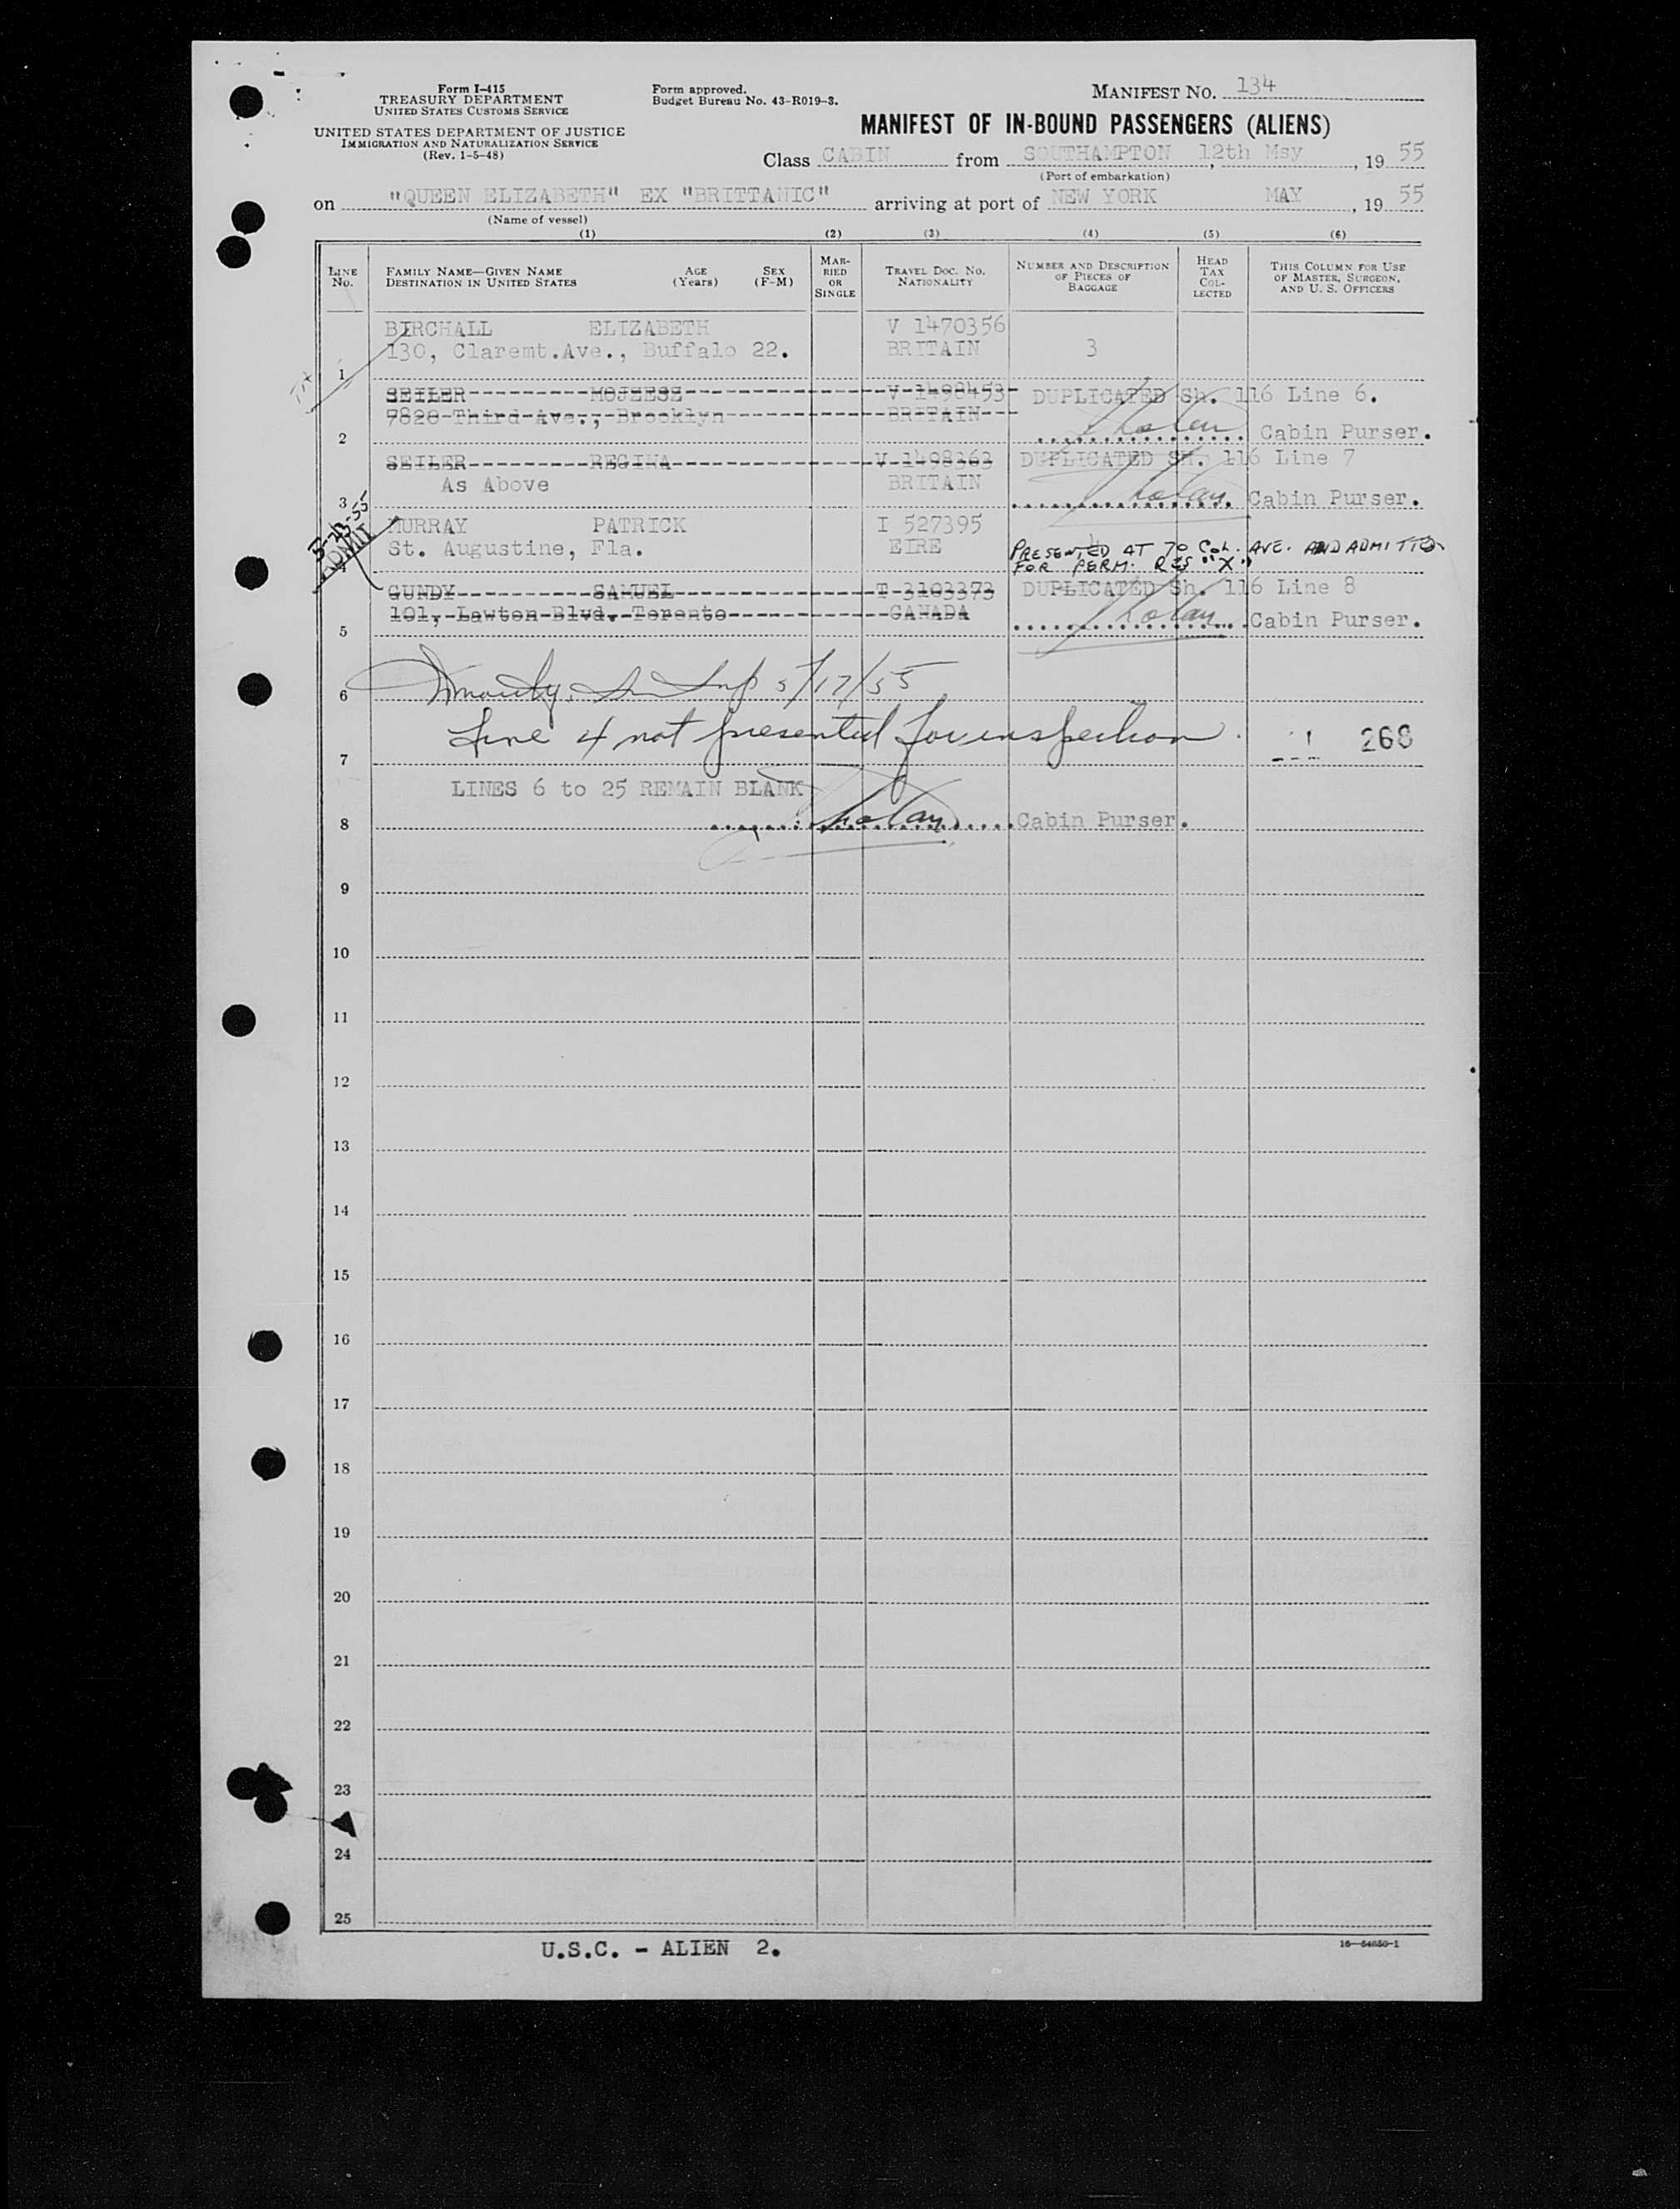 Form I-415
TREASURY DEPARTMENT
UNITED STATES CUSTOMS SERVICE
UNITED STATES DEPARTMENT OF JUSTICE
IMMIGRATION AND NATURALIZATION SERVICE
(Rev. 1-5-48)
Form approved.
Budget Bureau No. 43-R019-3.
MANIFEST NO. 134
MANIFEST OF IN-BOUND PASSENGERS (ALIENS)
Class CABIN from SOUTHAMPTON 12th Msy, 19 55
(Port of embarkation)
on "QUEEN ELIZABETH" EX "BRITTANIC" arriving at port of NEW YORK MAY, 19 55
(Name of vessel)
(1) (2) (3) (4) (5) (6)
LINE NO.
FAMILY NAME—GIVEN NAME AGE SEX
DESTINATION IN UNITED STATES (Years) (F-M)
MARRIED OR SINGLE
TRAVEL DOC. NO. NATIONALITY
NUMBER AND DESCRIPTION OF PIECES OF BAGGAGE
HEAD TAX COLLECTED
THIS COLUMN FOR USE OF MASTER, SURGEON, AND U. S. OFFICERS
BIRCHALL ELIZABETH V 1470356
130, Claremt.Ave., Buffalo 22. BRITAIN 3
1
SEILER MOJZESZ V-1498453 DUPLICATED Sh. 116 Line 6.
7820 Third Ave., Brooklyn BRITAIN
2 Cabin Purser.
SEILER REGINA V-1498363 DUPLICATED SH. 116 Line 7
As Above BRITAIN
3 Cabin Purser.
5-23-55
ADMIT
MURRAY PATRICK I 527395
St. Augustine, Fla. EIRE 4
PRESENTED AT 70 COL. AVE. AND ADMITTED
FOR PERM. RES "X"
4
GUNDY SAMUEL T-3103373 DUPLICATED Sh. 116 Line 8
101, Lawton Blvd. Toronto CANADA
5 Cabin Purser.
6 5/17/55
Line 4 not presented for inspection.
7 268
LINES 6 to 25 REMAIN BLANK
8 Cabin Purser.
9
10
11
12
13
14
15
16
17
18
19
20
21
22
23
24
25
U.S.C. - ALIEN 2.
16—54650-1